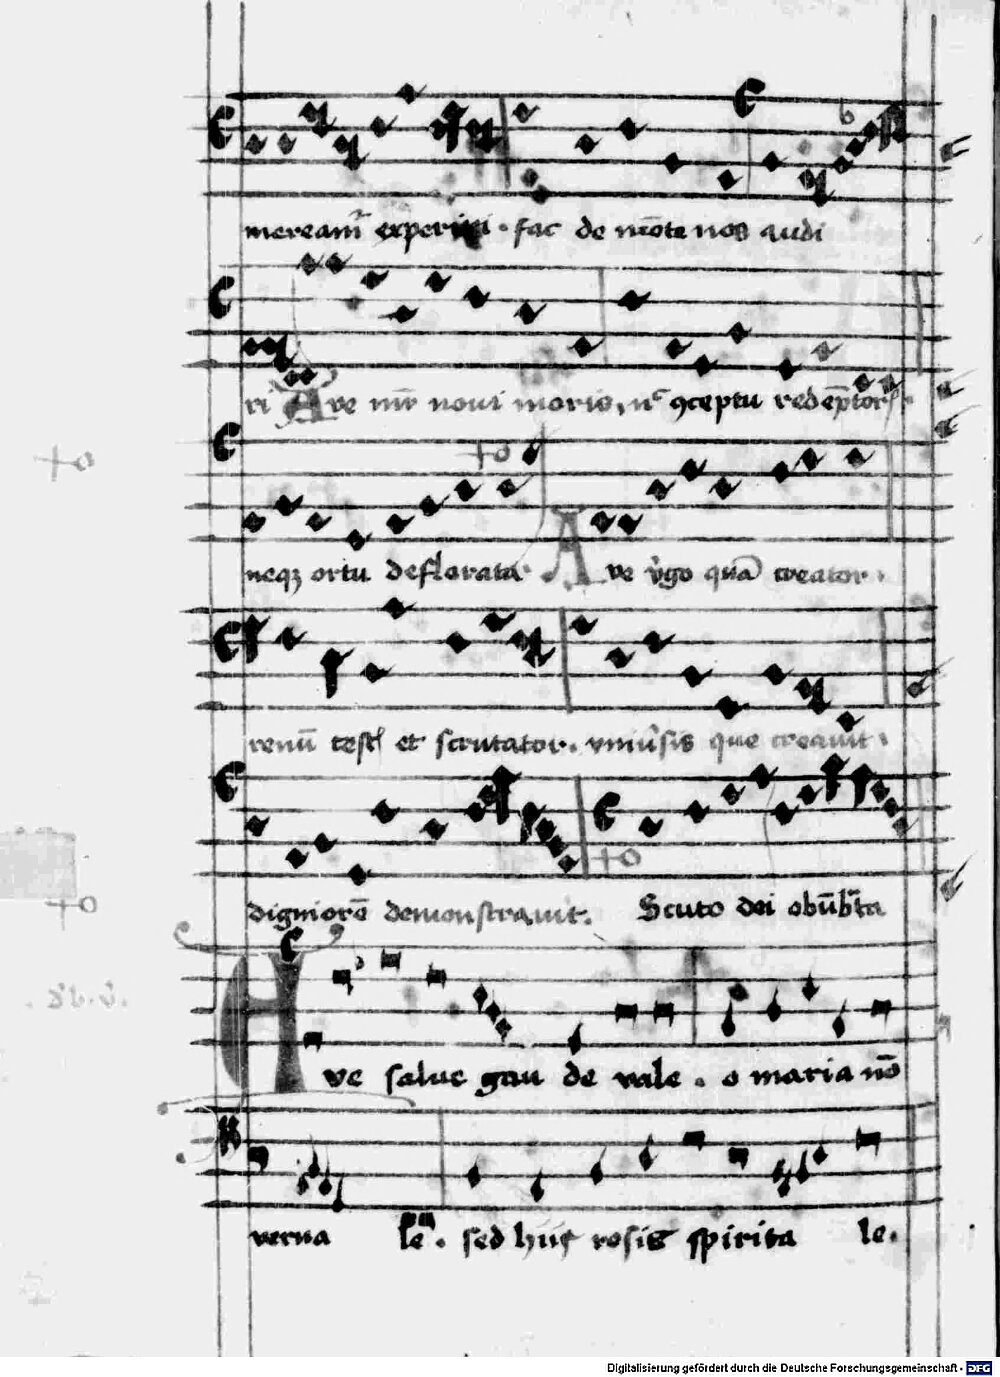 mereamr̄ experiri · fac de nr̄o te nos audi
ri Ave mr̄ novi moris, nc̄ ꝯceptu redēptor
neqꝫ ortu deflorata · Ave v̓go quā creator ·
renū test et scrutator · univ̓sis que creavit ·
digniorē demonstravit. Scuto dei obūbrata
Ave salue gau de vale . o maria nō
verna le . sed huiꝰ rosis spirita le.
Digitalisierung gefördert durch die Deutsche Forschungsgemeinschaft - DFG